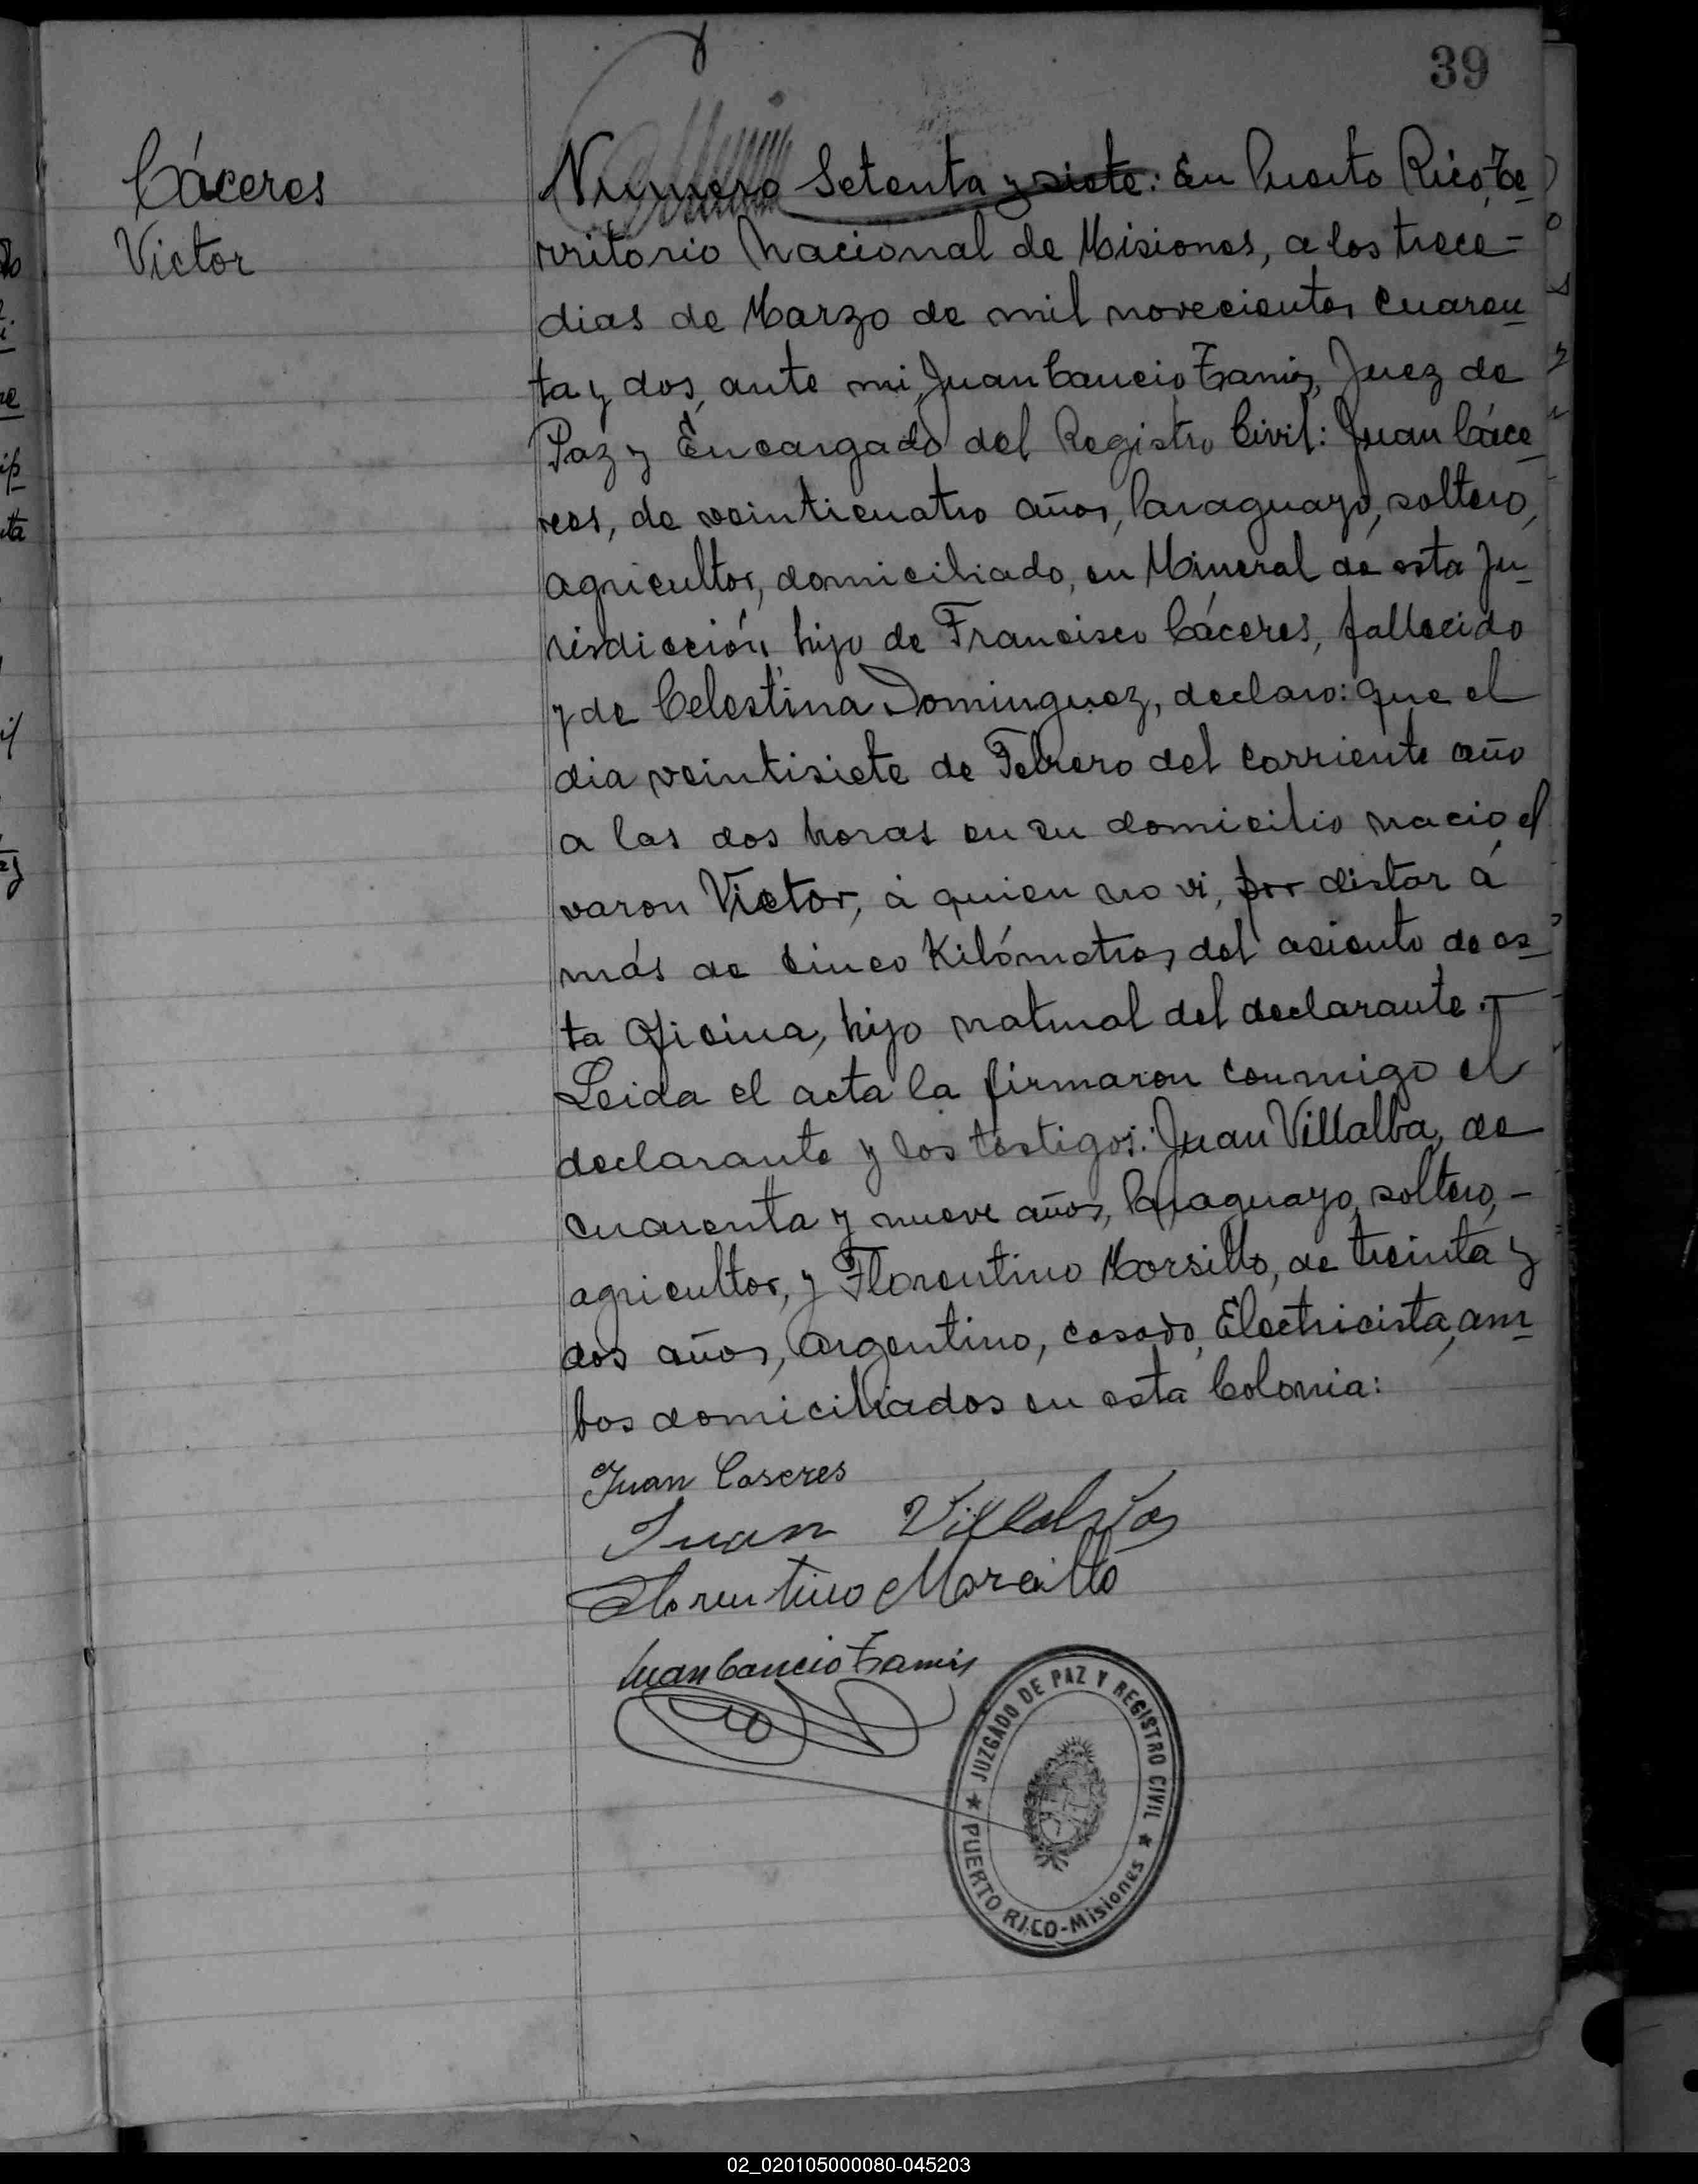 39
Cáceres
Victor
Numero Setenta y siete: En Puerto Rico, Te-
rritorio Nacional de Misiones, a los trece-
dias de Marzo de mil novecientos cuaren-
ta y dos, ante mi, Juan Cancio Framis, Juez de
Paz y Encargado del Registro Civil: Juan Cáce-
res, de veinticuatro años, Paraguayo, soltero,
agricultor, domiciliado, en Mineral de esta Ju-
risdicción, hijo de Francisco Cáceres, fallecido
y de Celestina Dominguez, declaro: que el
dia veintisiete de Febrero del corriente año
a las dos horas en su domicilio nacio el
varon Victor, á quien no vi, por distar á
más de cinco Kilómetros del asiento de es-
ta Oficina, hijo natural del declarante.-
Leida el acta la firmaron conmigo el
declarante y los testigos: Juan Villalba, de
cuarenta y nueve años, Paraguayo, soltero,-
agricultor, y Florentino Morsillo, de treinta y
dos años, Argentino, casado, Electricista, am-
bos domiciliados en esta Colonia:
Juan Caseres
Juan Villalba
Florentino Morcillo
Juan Cancio Framis
JUZGADO DE PAZ Y REGISTRO CIVIL
PUERTO RICO-Misiones
02_020105000080-045203